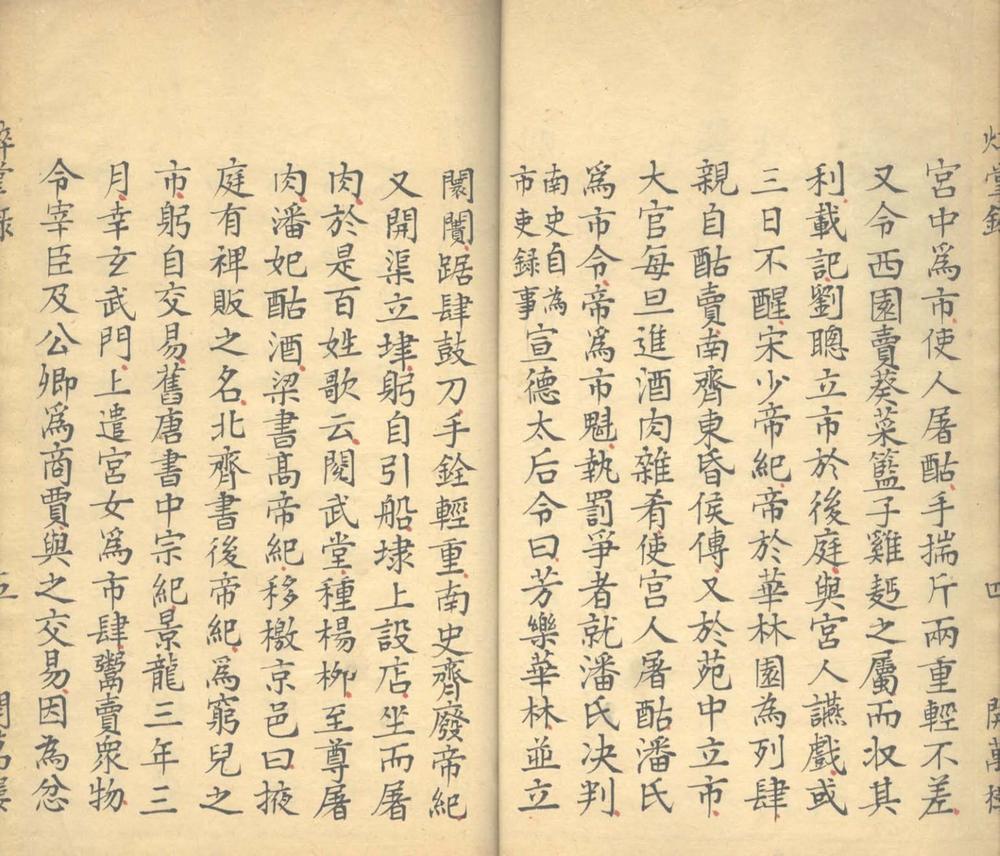 宮中為市使人屠酤手揣斤兩重輕不差
又令西園賣葵菜籃子雞麪之屬而収其
利載記劉聰立市於後庭與宮人讌戲或
三日不醒宋少帝紀帝於華林園為列肆
親自酤賣南齊東昏侯傳又於苑中立市
大官每旦進酒肉雜肴使宮人屠酤潘氏
為市令帝為市魁執罰爭者就潘氏決判
南史自為
市吏録事
宣德太后令曰芳樂華林並立
闤闠踞肆鼓刀手銓輕重南史齊廢帝紀
又開渠立埭躬自引船埭上設店坐而屠
肉於是百姓歌云閱武堂種楊柳至尊屠
肉潘妃酤酒梁書高帝紀移檄京邑曰掖
庭有裨販之名北齊書後帝紀為窮兒之
市躬自交易舊唐書中宗紀景龍三年三
月幸玄武門上遣宮女為市肆鬻賣眾物
令宰臣及公卿為商賈與之交易因為忿